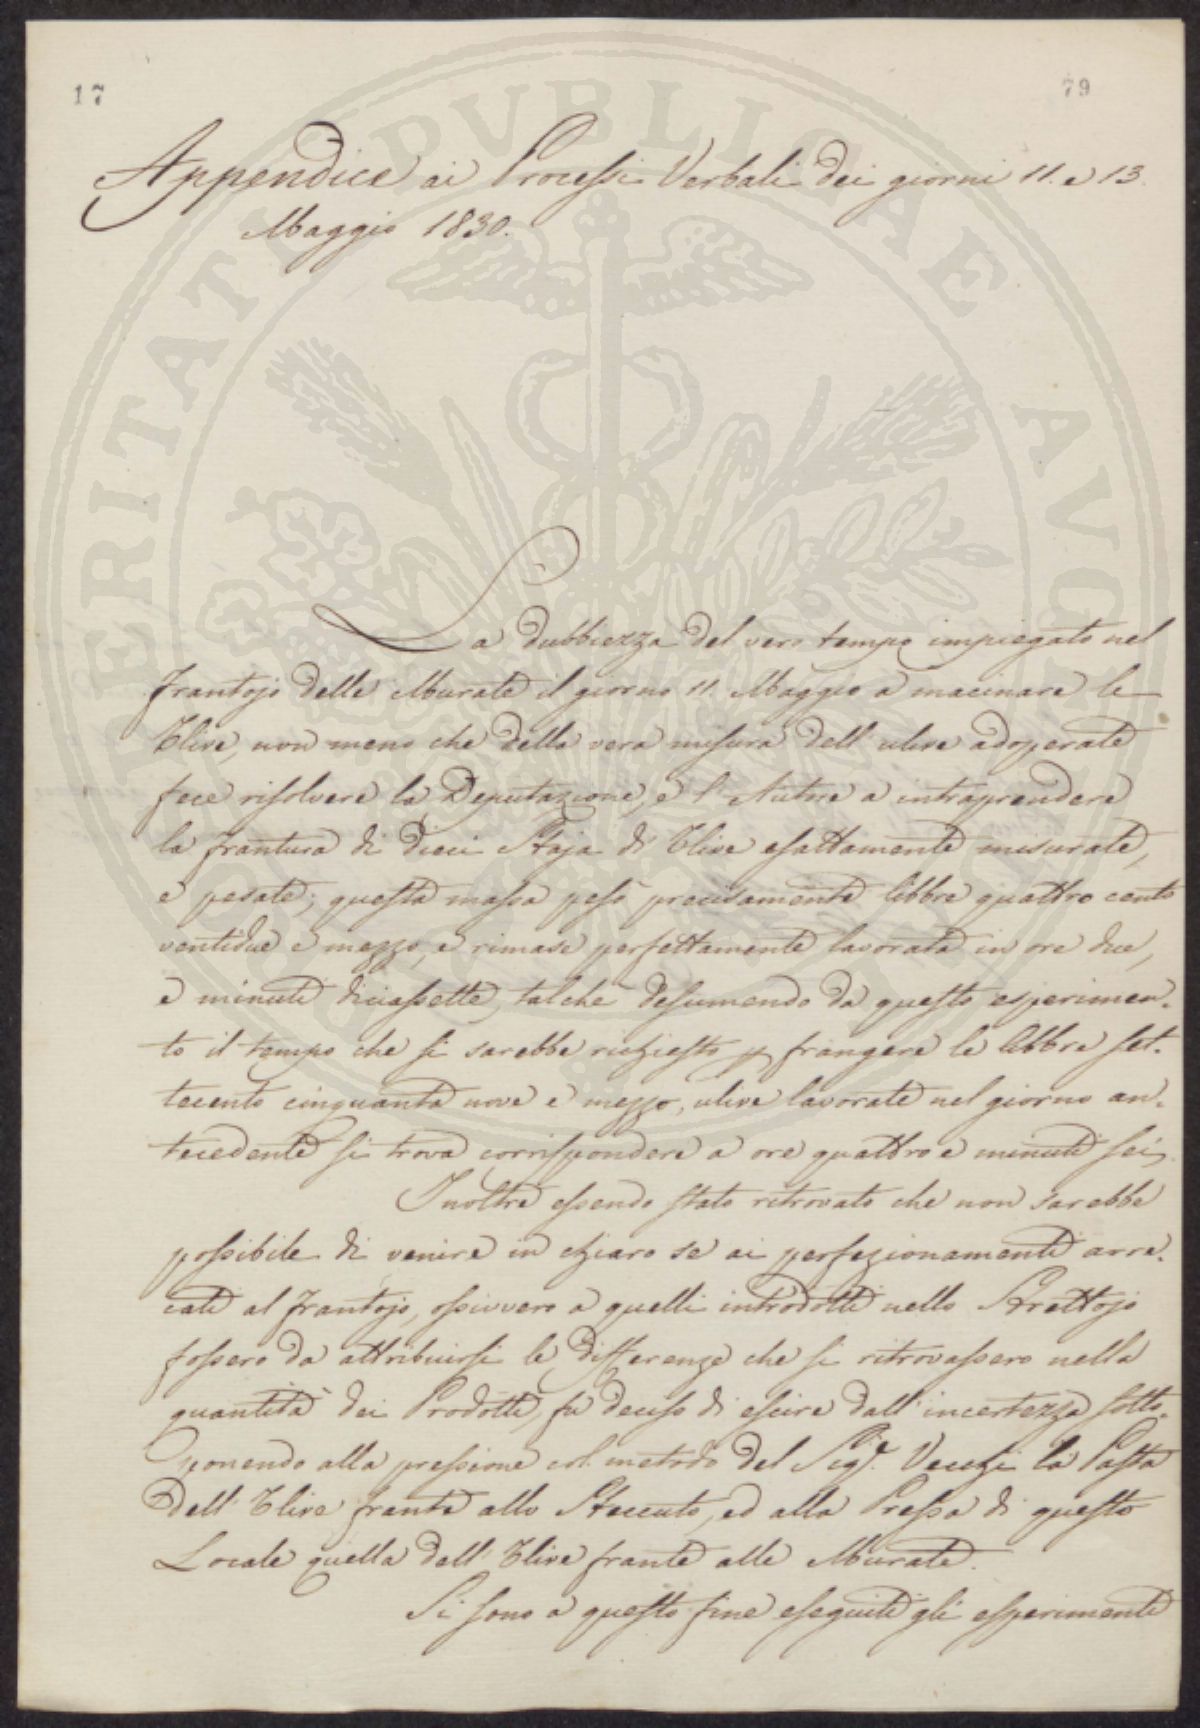 17
79
Appendice ai Processi Verbali dei giorni 11. e 13.
Maggio 1830.
La dubbiezza del vero tempo impiegato nel
Frantojo delle Murate il giorno 11. Maggio a macinare le
Ulive, non meno che della vera misura dell' ulive adoperate
fece risolvere la Deputazione, e l' Autore a intraprendere
la frantura di Dieci Staja di Ulive esattamente misurate,
e pesate; questa massa pesò precisamente libbre quattro cento
ventidue e mezzo, e rimase perfettamente lavorata in ore due,
e minuti diciassette, talchè desumendo da questo esperimen-
to il tempo che si sarebbe richiesto p frangere le libbre set-
tecento cinquanta nove e mezzo, ulive lavorate nel giorno an-
tecedente si trova corrispondere a ore quattro e minuti sei.
Inoltre essendo stato ritrovato che non sarebbe
possibile di venire in chiaro se ai perfezionamenti arre-
cati al Frantojo, ossivvero a quelli introdotti nello Strettojo
fossero da attribuirsi le differenze che si ritrovassero nella
quantità dei Prodotti, fu deciso di escire dall' incertezza sotto-
ponendo alla pressione col metodo del Sigr. Vecchi la Pasta
dell' Ulive frante allo Steccuto, ed alla Pressa di questo
Locale quella dell' Ulive frante alle Murate.
Si sono a questo fine eseguiti gli esperimenti
PVBLICAE
PROSPERITATI
AVGENDAE